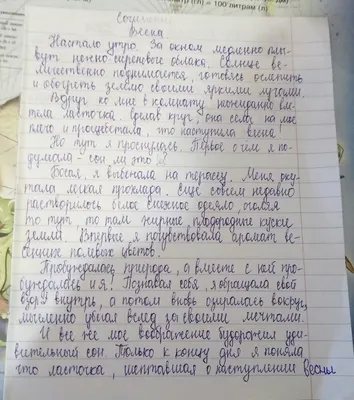 (гл) = 100 литрам (л)
Сочинение
Весна
Настало утро. За окном медленно плы-
вут нежно-сиреневые облака. Солнце ве-
личественно поднимается, готовясь осветить
и обогреть землю своими яркими лучами.
Вдруг ко мне в комнату неожиданно вле-
тела ласточка. Сделав круг, она села на мое
плечо и прощебетала, что наступила весна!
Но тут я проснулась. Первое о чём я по-
думала - сон ли это?
Босая, я выбежала на террасу. Меня оку-
тала легкая прохлада. Ещё совсем недавно
растворилось белое снежное одеяло, оголяя
то тут, то там жирные, плодородные куски
земли. Впервые я почувствовала аромат ве-
сенних полевых цветов.
Пробуждалась природа, а вместе с ней про-
буждалась и я! Познавая себя, я обращала свой
взор внутрь, а потом вновь озиралась вокруг,
мысленно убегая вслед за своими мечтами.
И все же мое воображение будоражил уди-
вительный сон. Только к концу дня я поняла
что ласточка, шептавшая о наступлении весны